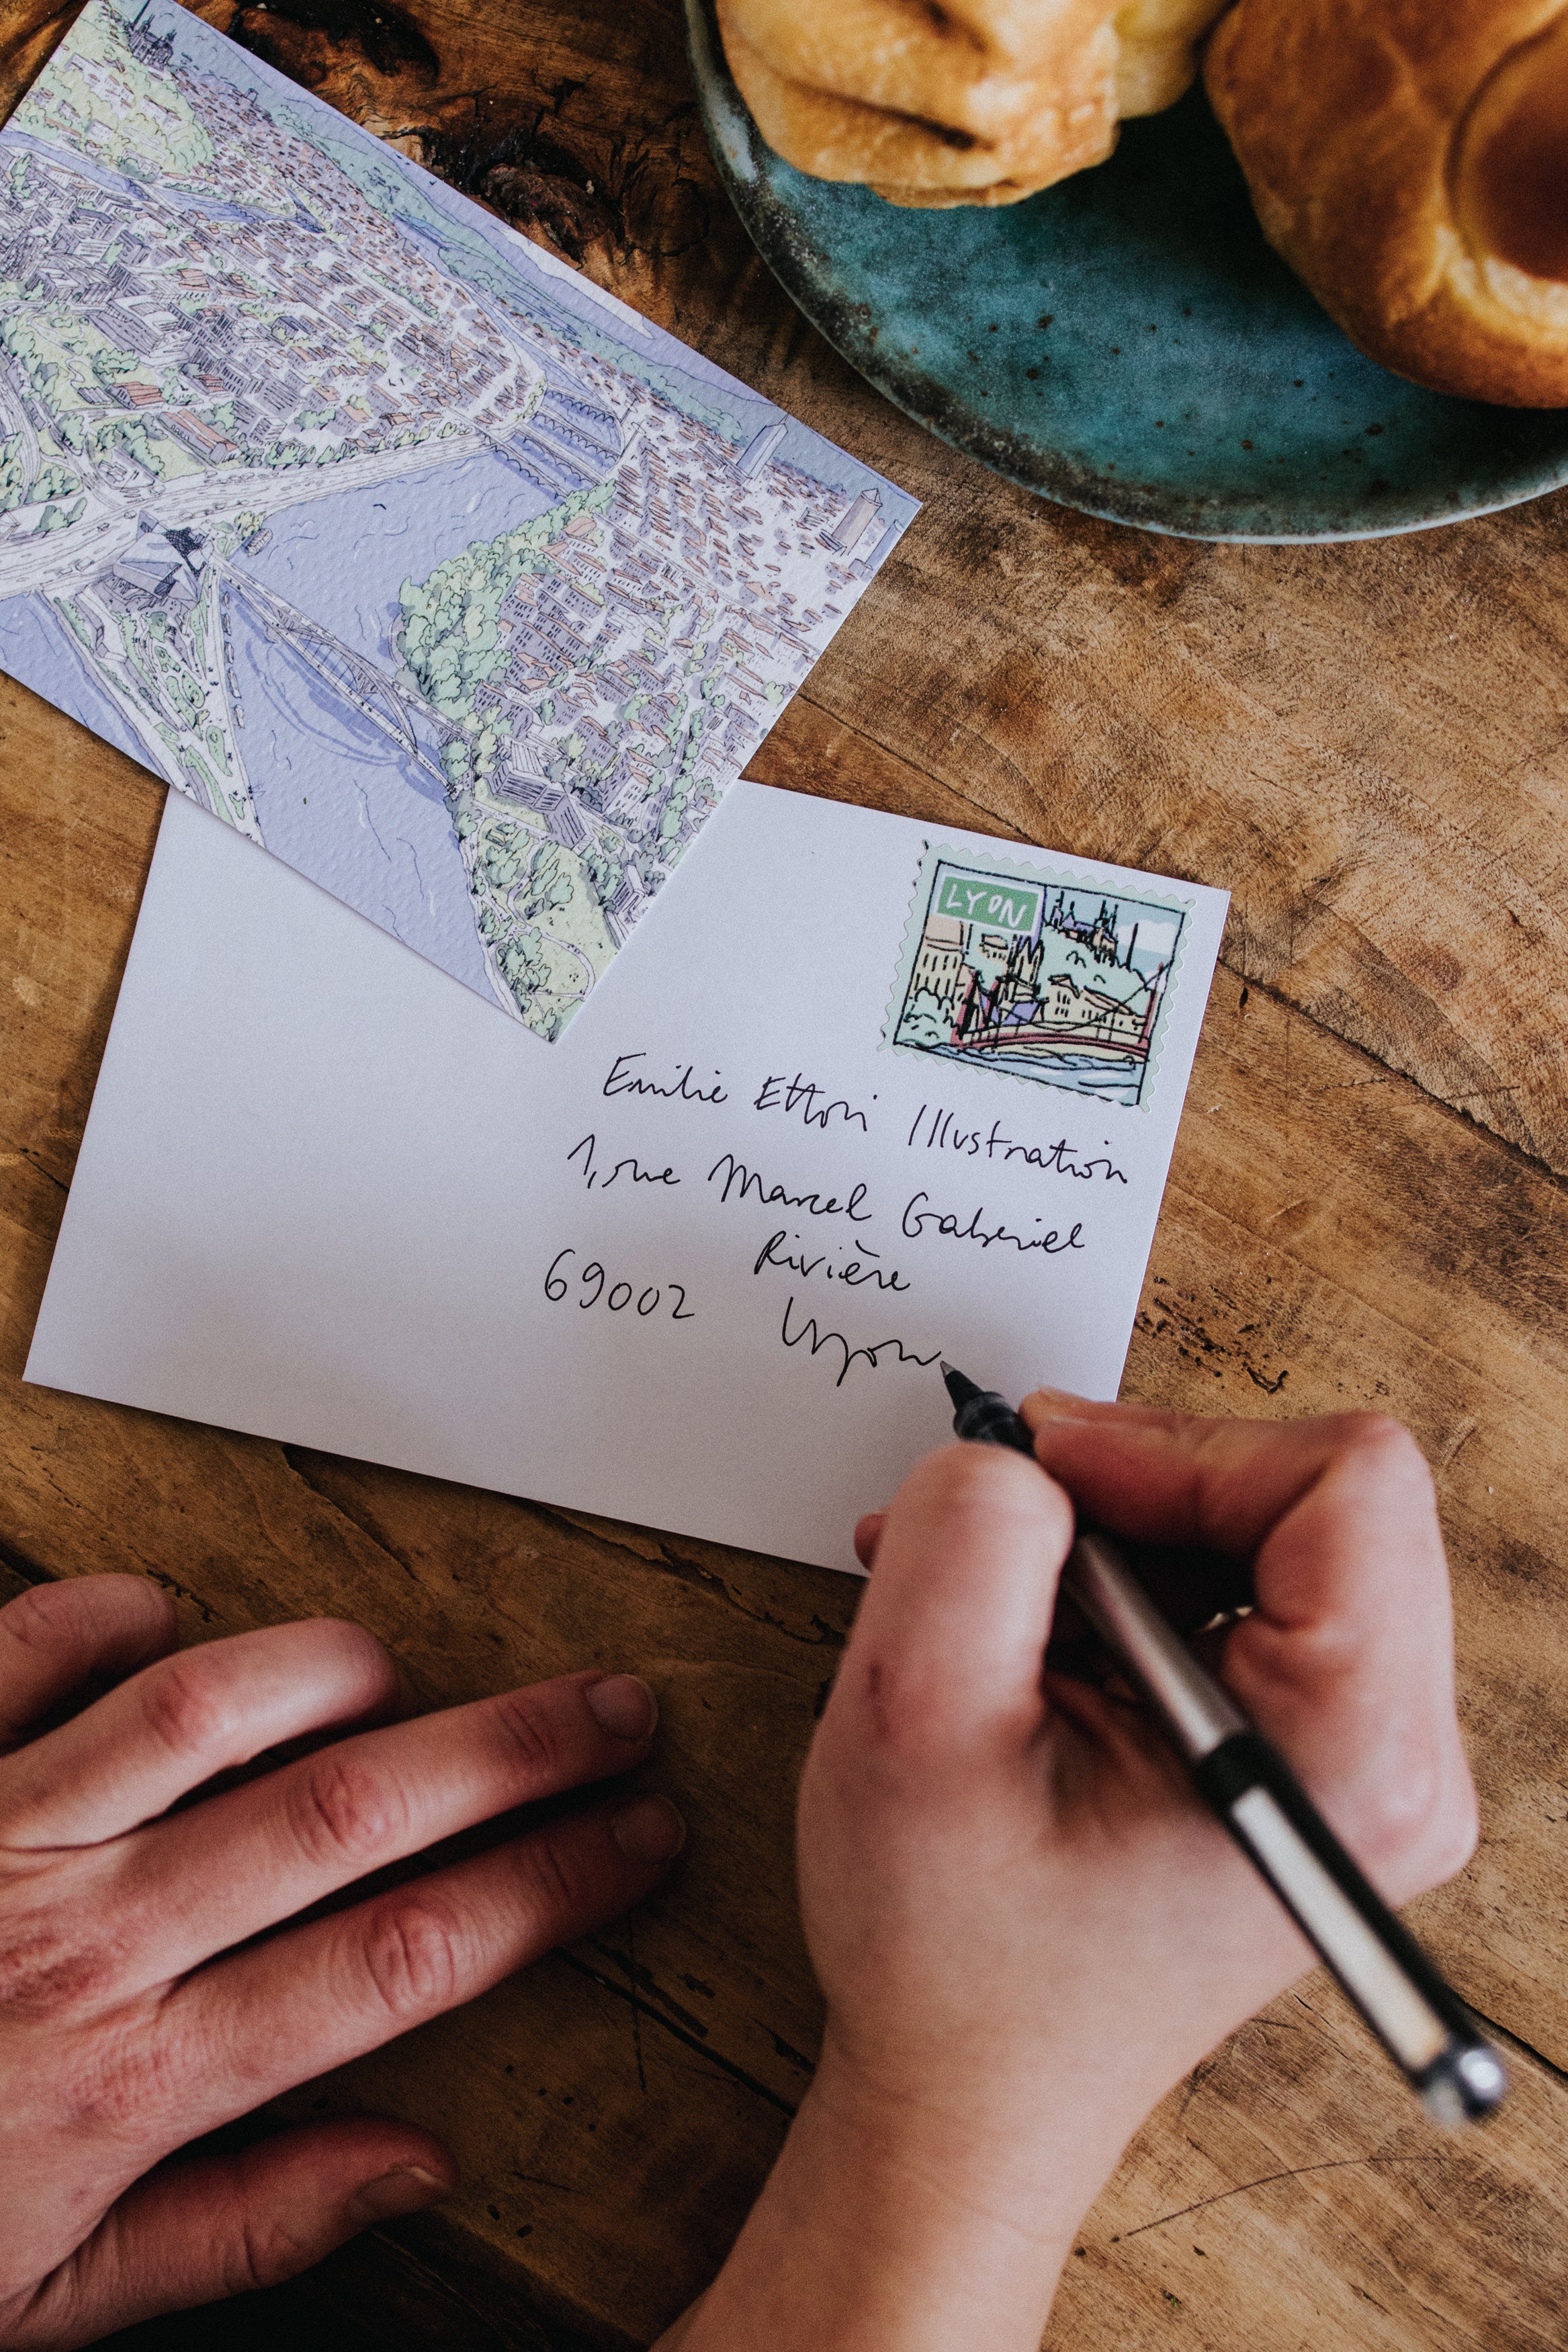 LYON
Emilie Ettori Illustration
1, rue Marcel Gabriel
Rivière
69002 Lyon